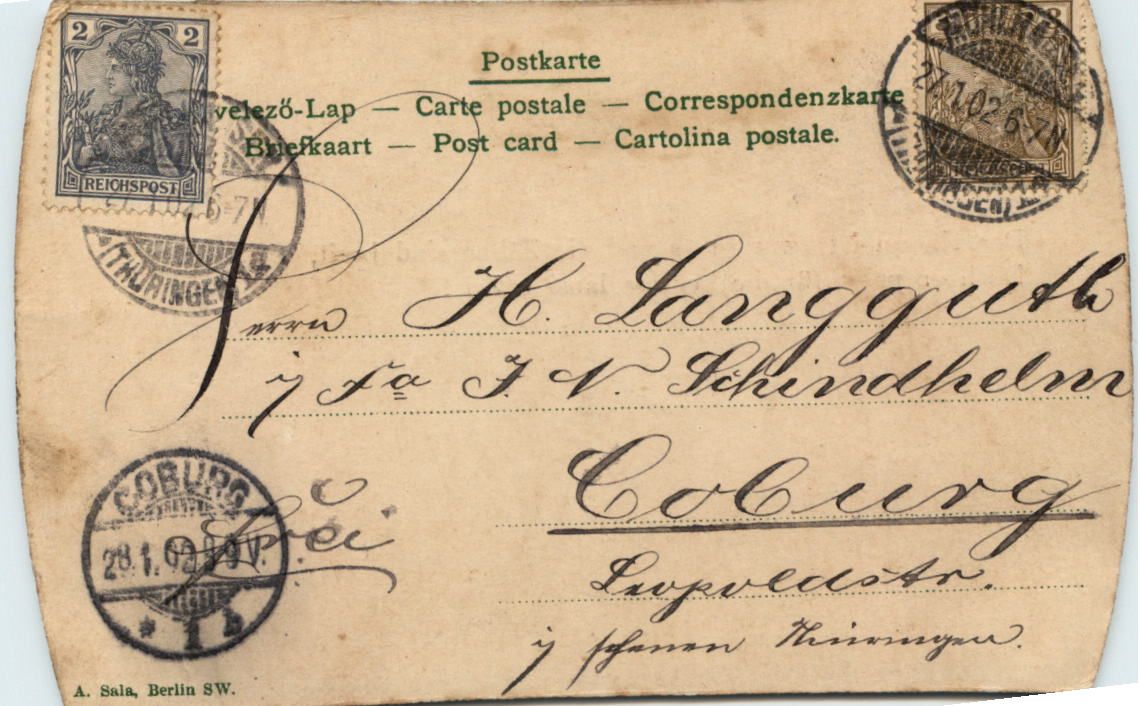 2 2
REICHSPOST
Postkarte
velező-Lap — Carte postale — Correspondenzkarte
Briefkaart — Post card — Cartolina postale.
27.1.02 6-7N
(THÜRINGEN)
27.1.02 6-7N
(THÜRINGEN)
REICHSPOST
Herrn H. Langguth
i/ Fa J. N. Schindhelm
Coburg
Leopoldstr.
i/ Thüringen.
Frei
COBURG
28.1.02 8-9V.
* 1 b
A. Sala, Berlin SW.